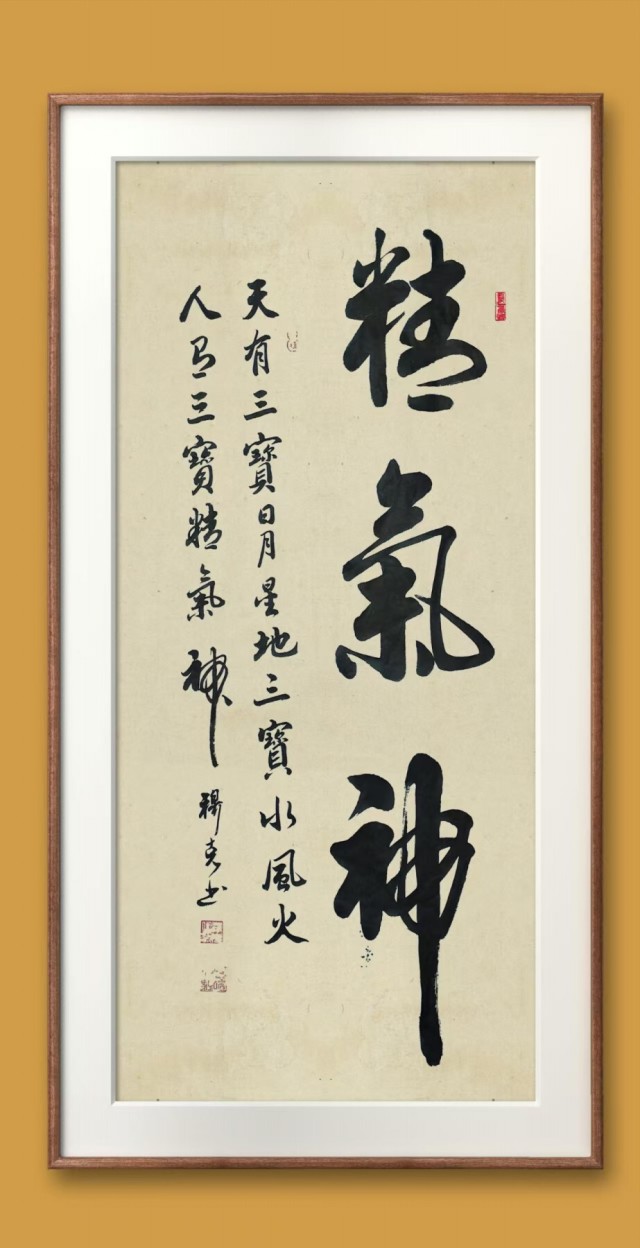 精氣神
天有三寶日月星地三寶水風火
人有三寶精氣神
克书